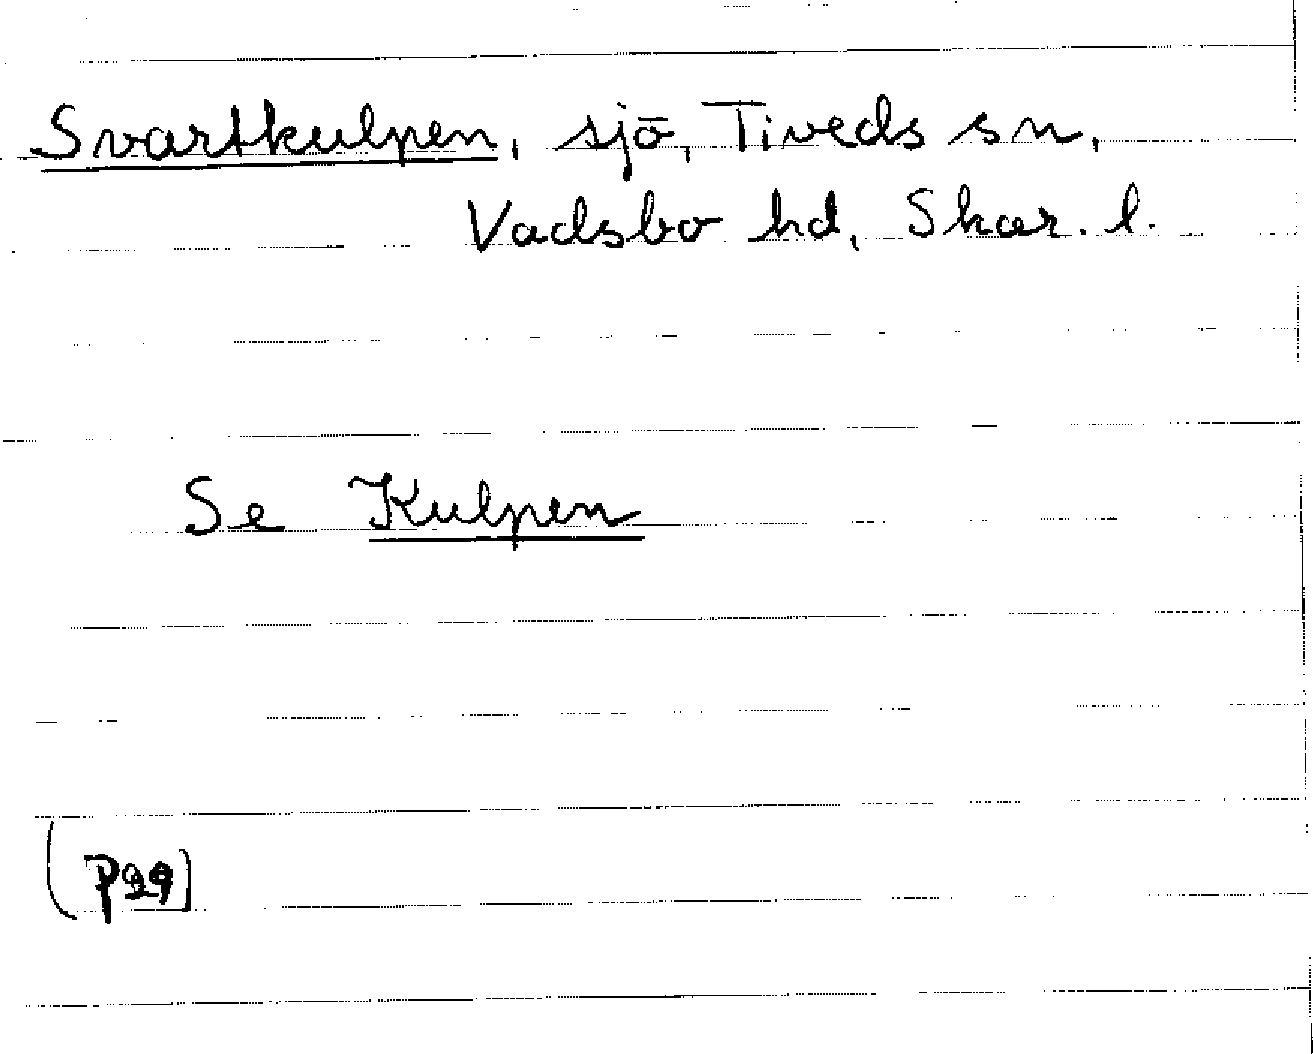 Svartkulpen, sjö, Tiveds sn,
Vadsbo hd, Skar. l.
Se Kulpen
(P29)